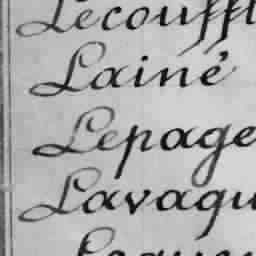 Lecouffl
Lainé
Lepage
Lavaqu